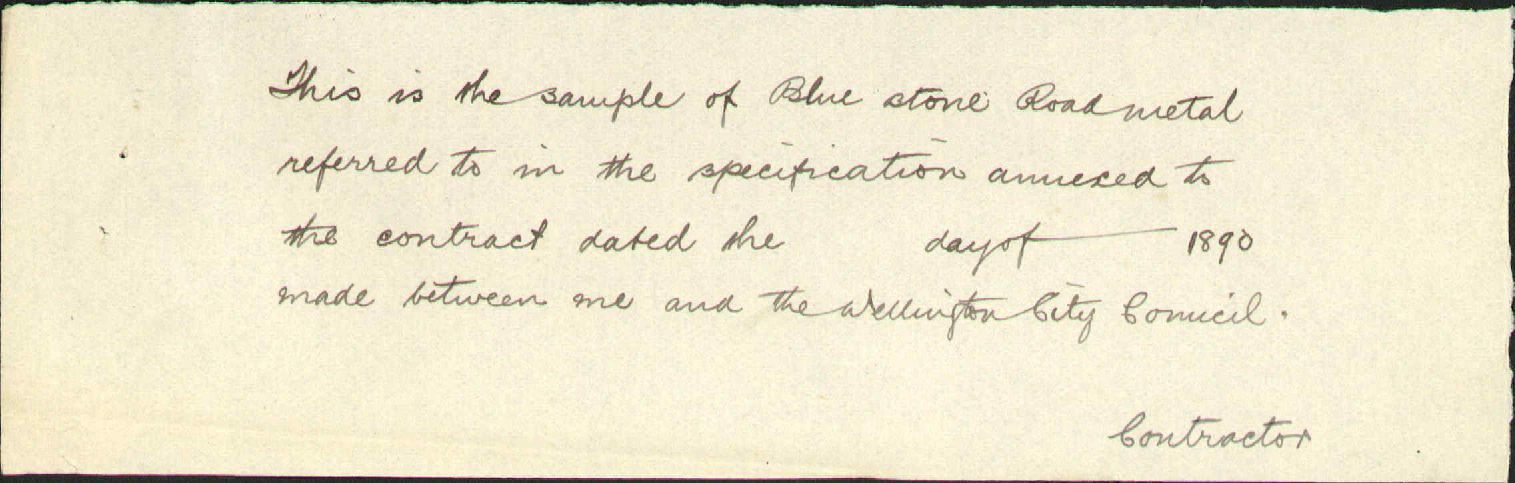 This is the sample of Blue stone Road metal
referred to in the specification annexed to
the contract dated the day of — 1890
made between me and the Wellington City Council.
Contractor